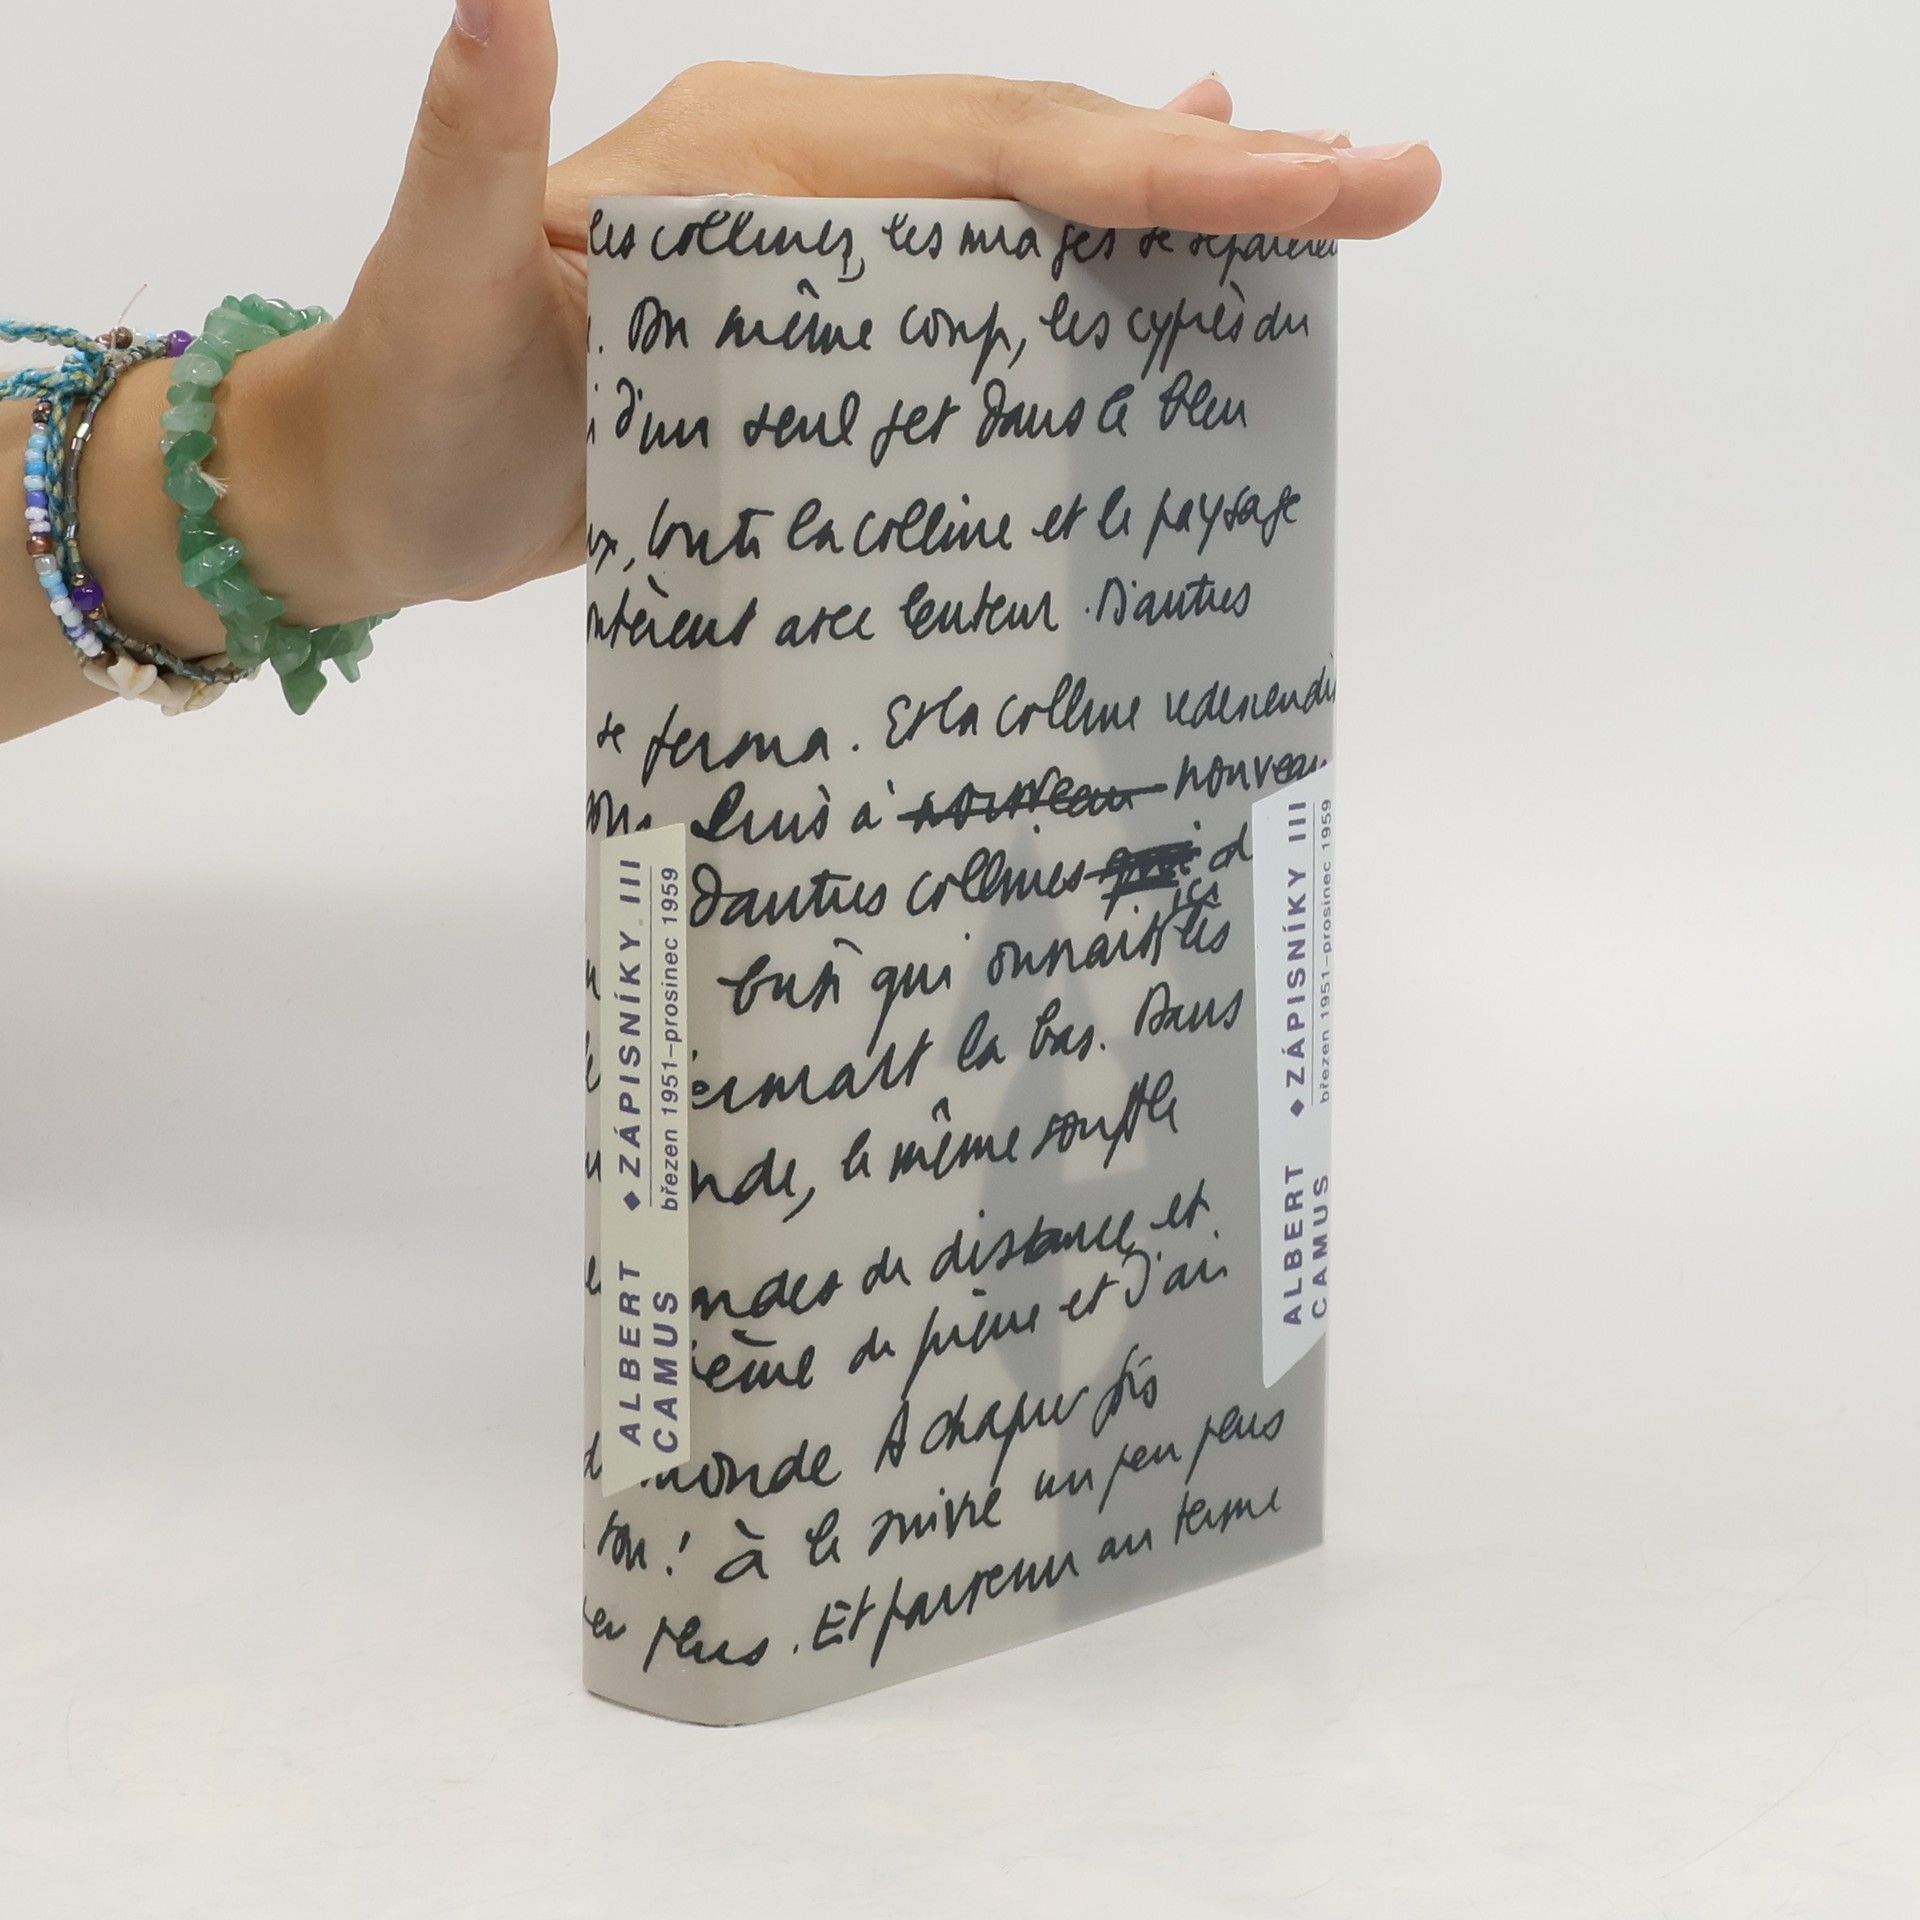 les collines, les nuages se séparèrent
. Du même coup, les cyprès du
d'un seul jet dans le bleu
toute la colline et le paysage
avec lenteur. D'autres
se ferma. Et la colline redescendit
Puis à nouveau nouveau
D'autres collines qui d
ici
qui ouvrait les
fermait la bas. Dans
nde, le même souffle
ndes de distance et
ième de pierre et J'ai
monde A chaque fois
ton! à le suivre un peu plus
plus. Et parvenu au terme
ALBERT
CAMUS
◆ ZÁPISNÍKY III
březen 1951–prosinec 1959
ALBERT
CAMUS
◆ ZÁPISNÍKY III
březen 1951–prosinec 1959